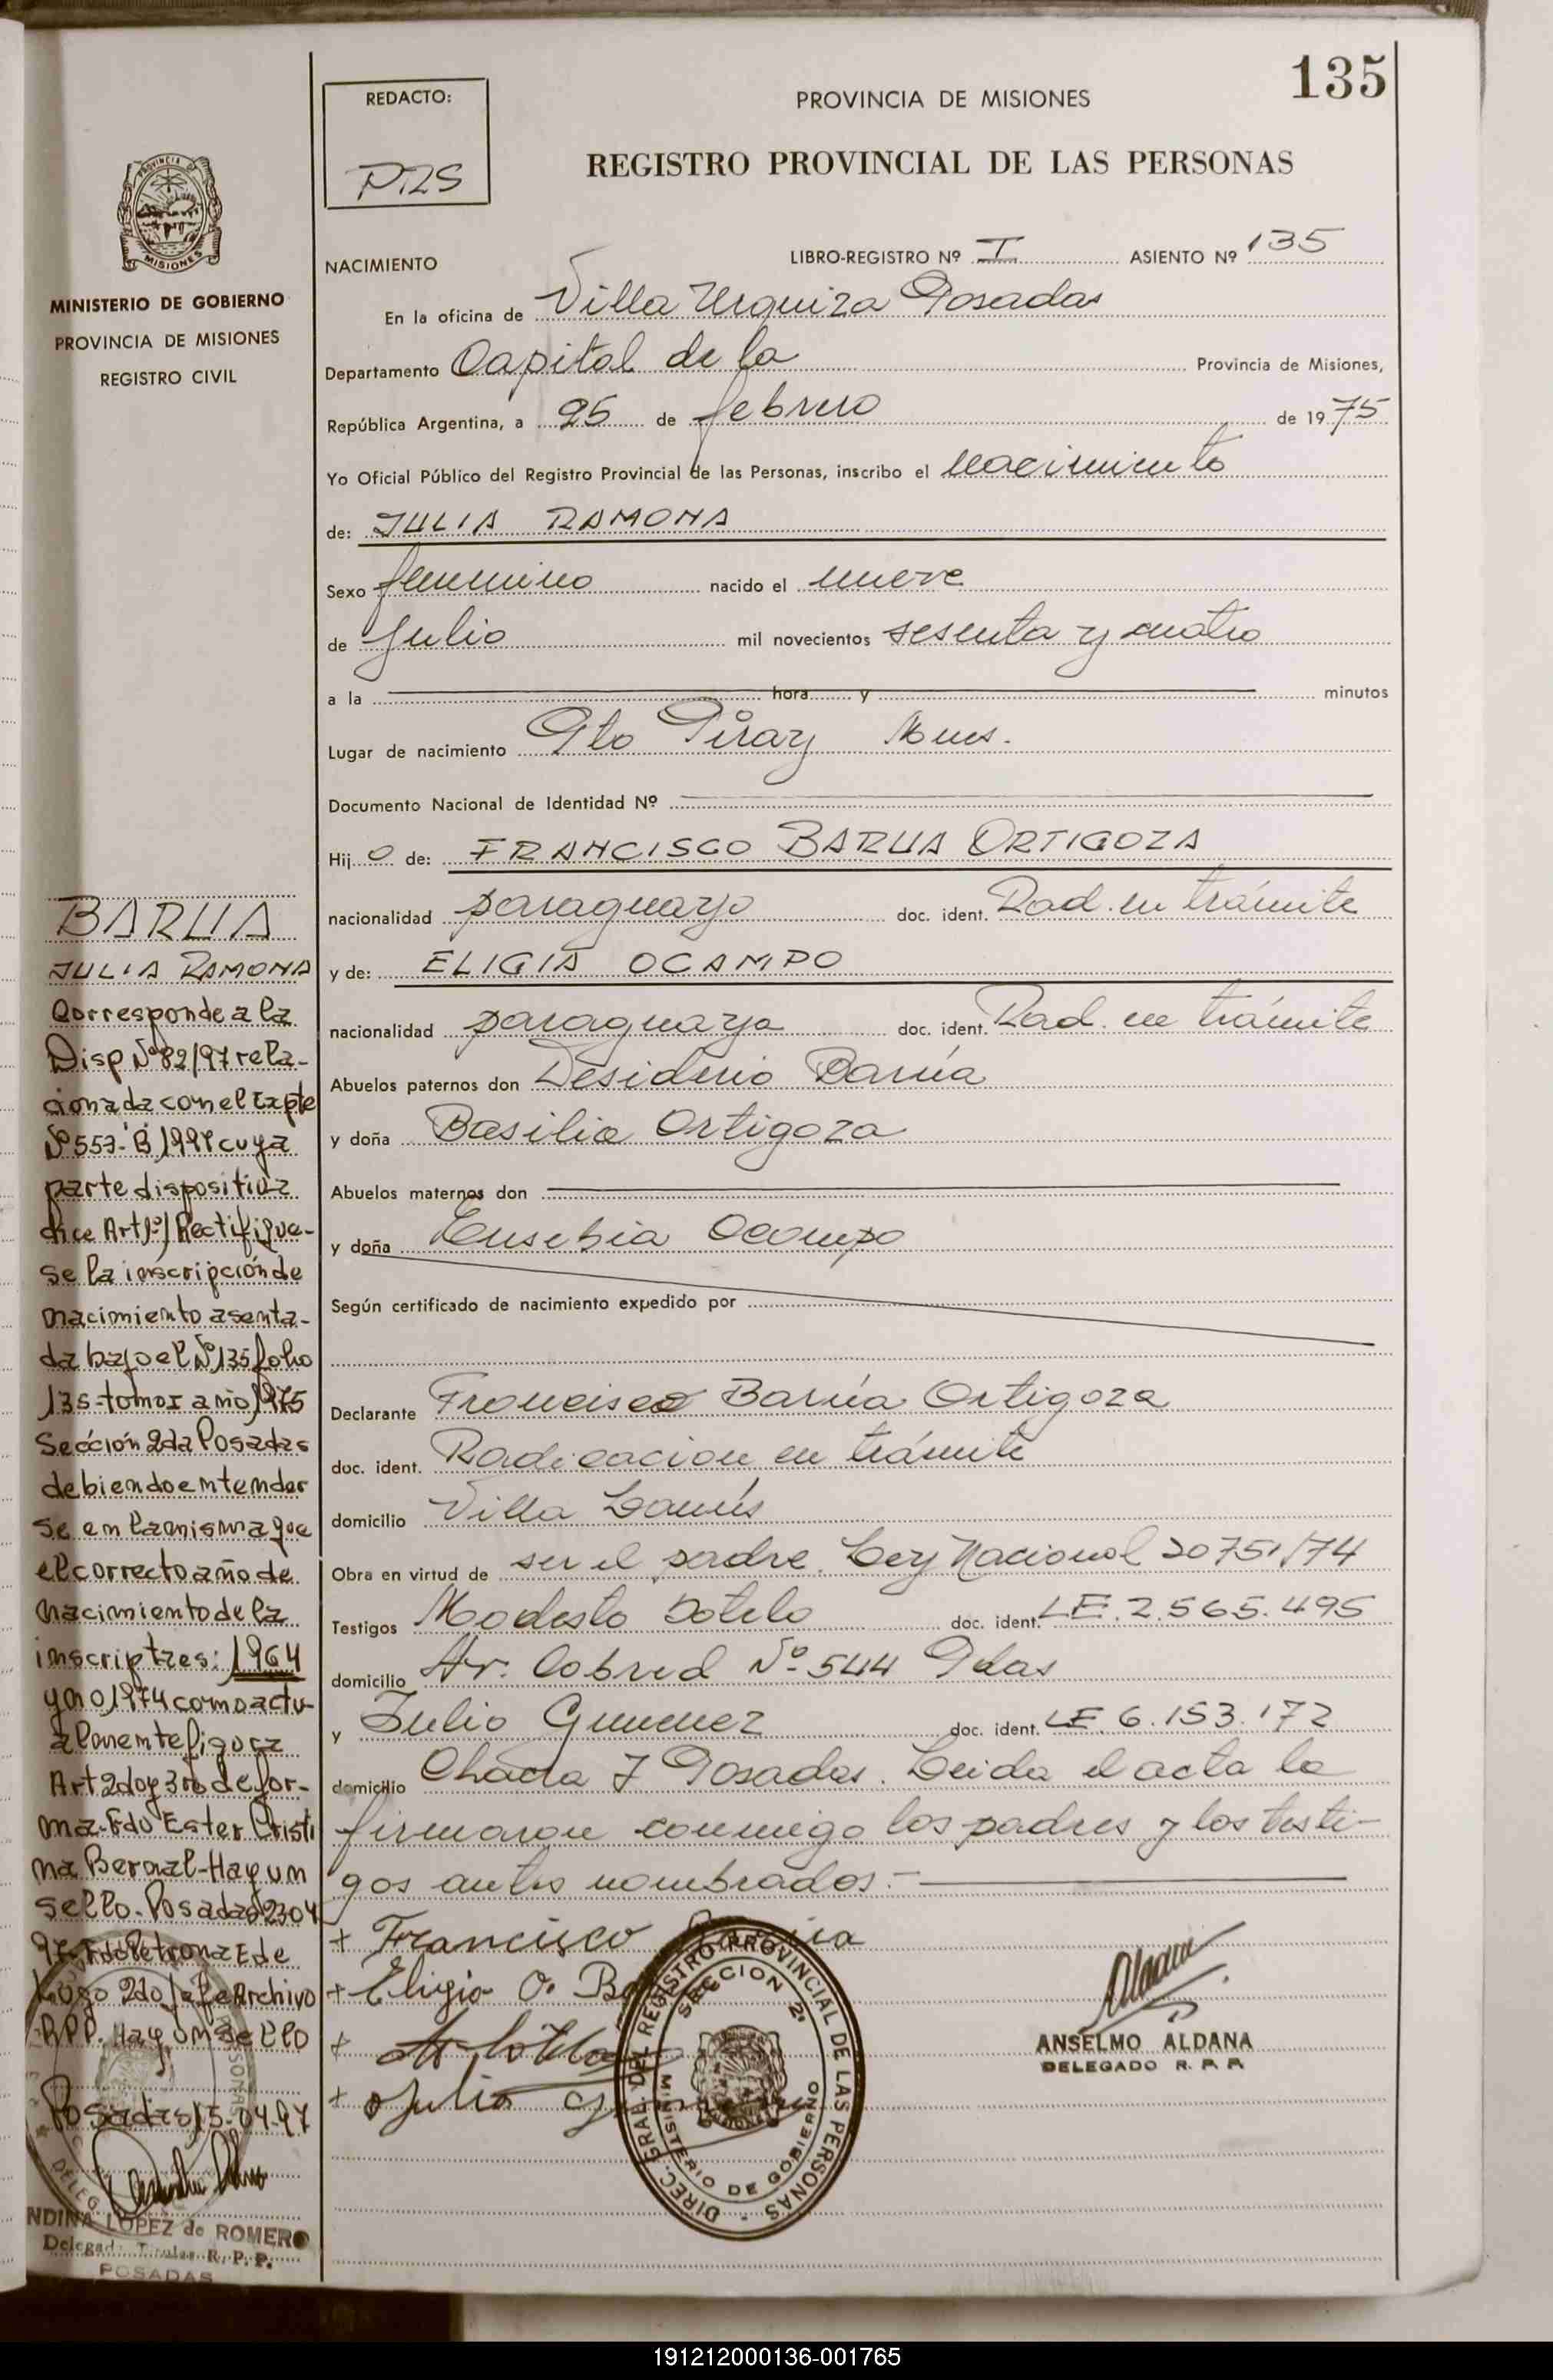 135
REDACTO:
PRS
PROVINCIA DE MISIONES
REGISTRO PROVINCIAL DE LAS PERSONAS
PROVINCIA DE
MISIONES
MINISTERIO DE GOBIERNO
PROVINCIA DE MISIONES
REGISTRO CIVIL
NACIMIENTO
LIBRO-REGISTRO Nº I ASIENTO Nº 135
En la oficina de Villa Urquiza Posadas
Departamento Capital de la Provincia de Misiones,
República Argentina, a 25 de febrero de 1975
Yo Oficial Público del Registro Provincial de las Personas, inscribo el nacimiento
de: JULIA RAMONA
Sexo femenino nacido el nueve
de Julio mil novecientos sesenta y cuatro
a la hora y minutos
Lugar de nacimiento Pto Piray Mnes.
Documento Nacional de Identidad Nº
Hijo de: FRANCISCO BARUA ORTIGOZA
nacionalidad paraguayo doc. ident. Rad. en trámite
y de: ELIGIA OCAMPO
nacionalidad paraguaya doc. ident. Rad. en trámite
Abuelos paternos don Desiderio Barúa
y doña Basilia Ortigoza
Abuelos maternos don
y doña Eusebia Ocampo
Según certificado de nacimiento expedido por
Declarante Francisco Barúa Ortigoza
doc. ident. Radicacion en trámite
domicilio Villa Lanús
Obra en virtud de ser el padre. Ley Nacional 20751/74
Testigos Modesto Sotelo doc. ident. LE. 2.565.495
domicilio Av. Cobred Nº 544 Pdas
y Julio Gimenez doc. ident. LE. 6.153.172
domicilio Chacra 7 Posadas. Leida el acta la
firmaron conmigo los padres y los testi-
gos antes nombrados.-
+ Francisco
+ Eligia O. Ba
+
+ Julio
DIREC. GRAL. DEL REGISTRO PROVINCIAL DE LAS PERSONAS
SECCION 2ª
MINISTERIO DE GOBIERNO
ANSELMO ALDANA
DELEGADO R. P. P.
BARUA
JULIA RAMONA
Corresponde a la
Disp Nº 82/97 rela-
cionada con el Expte
Nº 553-B, 1997 cuya
parte dispositiva
dice Art 1º) Rectifique-
se la inscripción de
nacimiento asenta-
da bajo el Nº 135 folio
135-tomo I año 1975
Sección 2da Posadas
debiendo entender
se en la misma que
el correcto año de
nacimiento de la
inscripta es: 1964
y no 1974 como actu-
almente figura
Art 2do y 3ro de for-
ma-Fdo Ester Cristi
na Bernal-Hay un
sello. Posadas 2304
97-Fdo Petrona E de
Lugo 2do Jefe Archivo
RPP. Hay un sello
Posadas 15-04-97
NDINA LOPEZ de ROMERO
Delegada Titular R. P. P.
POSADAS
191212000136-001765